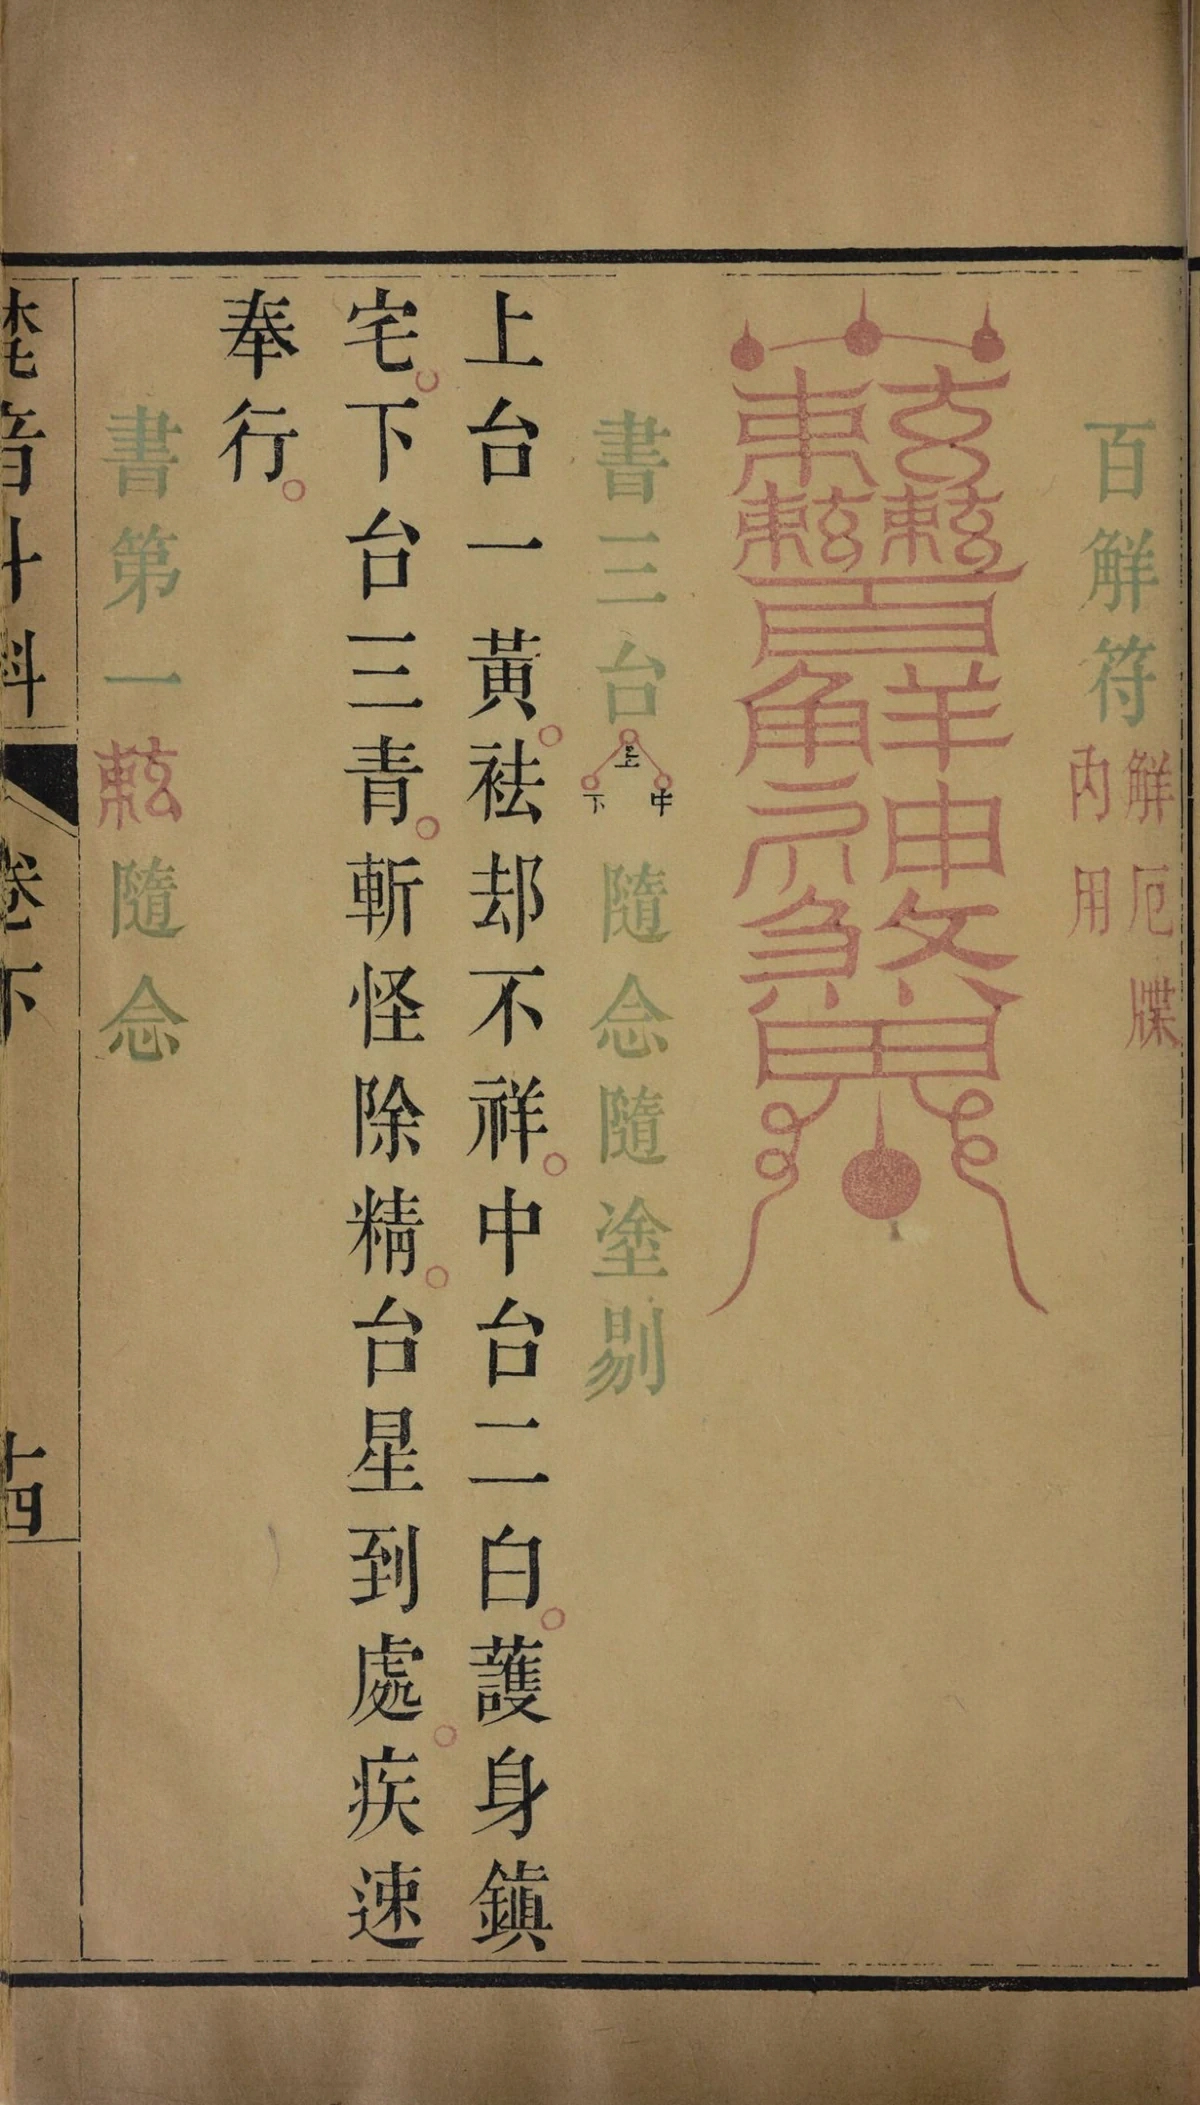 百觧符 觧厄牒
内用
書三台 上 中 下 隨念隨塗剔
上台一黃。袪却不祥。中台二白。護身鎮
宅。下台三青。斬怪除精。台星到處。疾速
奉行。
書第一𢽾隨念
梵音斗科 卷下 十四